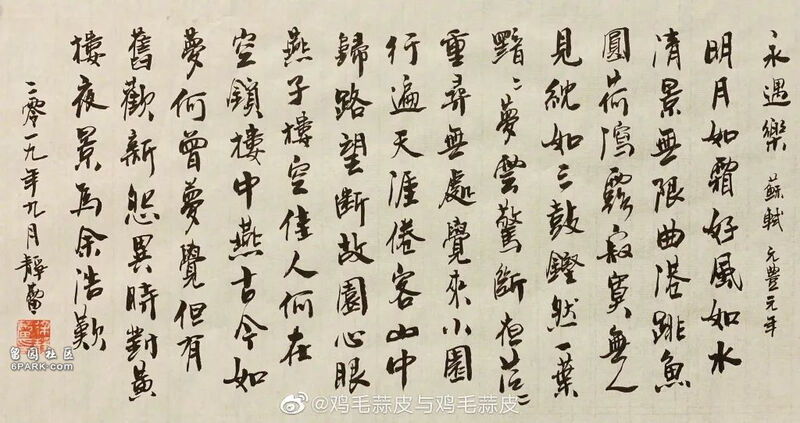 永遇樂 蘇軾 元豐元年
明月如霜好風如水
清景無限曲港跳魚
圓荷瀉露寂寞無人
見紞如三鼓鏗然一葉
黯〻夢雲驚斷夜茫〻
重尋無處覺來小園
行遍天涯倦客山中
歸路望斷故園心眼
燕子樓空佳人何在
空鎖樓中燕古今如
夢何曾夢覺但有
舊歡新怨異時對黃
樓夜景為余浩歎
二零一九年九月靜蕾
留园社区
6PARK.COM
@鸡毛蒜皮与鸡毛蒜皮